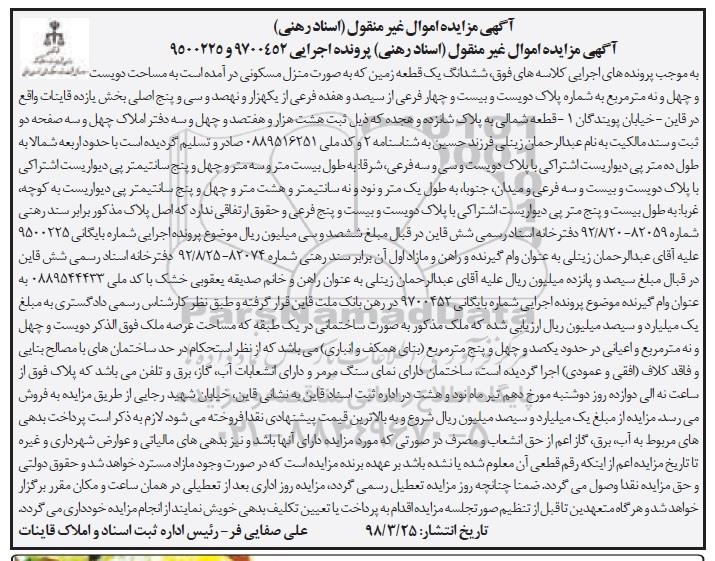 آگهی مزایده اموال غیر منقول (اسناد رهنی)
آگهی مزایده اموال غیر منقول (اسناد رهنی) پرونده اجرایی ۹۷۰۰۴۵۲ و ۹۵۰۰۲۲۵
به موجب پرونده های اجرایی کلاسه های فوق، ششدانگ یک قطعه زمین که به صورت منزل مسکونی در آمده است به مساحت دویست
و چهل و نه مترمربع به شماره پلاک دویست و بیست و چهار فرعی از سیصد و هفده فرعی از یکهزار و نهصد و سی و پنج اصلی بخش یازده قاینات واقع
در قاین - خیابان پویندگان ۱ - قطعه شمالی به پلاک شانزده و هجده که ذیل ثبت هشت هزار و هفتصد و چهل و سه دفتر املاک چهل و سه صفحه دو
ثبت و سند مالکیت به نام عبدالرحمان زینلی فرزند حسین به شناسنامه ۲ و کد ملی ۰۸۸۹۵۱۶۲۵۱ صادر و تسلیم گردیده است با حدود اربعه شمالا به
طول ده متر پی دیواریست اشتراکی با پلاک دویست و سی و سه فرعی، شرقا: به طول بیست متر و سه متر و چهل و پنج سانتیمتر پی دیواریست اشتراکی
با پلاک دویست و بیست و سه فرعی و میدان، جنوبا، به طول یک متر و نود و نه سانتیمتر و هشت متر و چهل و پنج سانتیمتر پی دیواریست به کوچه،
غربا: به طول بیست و پنج متر پی دیواریست اشتراکی با پلاک دویست و بیست و پنج فرعی و حقوق ارتفاقی ندارد که اصل پلاک مذکور برابر سند رهنی
شماره ۸۲۰۵۹-۹۲/۸/۲۰ دفترخانه اسناد رسمی شش قاین در قبال مبلغ ششصد و سی میلیون ریال موضوع پرونده اجرایی شماره بایگانی ۹۵۰۰۲۲۵
علیه آقای عبدالرحمان زینلی به عنوان وام گیرنده و راهن و مازاد اول آن برابر سند رهنی شماره ۸۲۰۷۴-۹۲/۸/۲۵ دفترخانه اسناد رسمی شش قاین
در قبال مبلغ سیصد و پانزده میلیون ریال علیه آقای عبدالرحمان زینلی به عنوان راهن و خانم صدیقه یعقوبی خشک با کد ملی ۰۸۸۹۵۴۴۴۳۳ به
عنوان وام گیرنده موضوع پرونده اجرایی شماره بایگانی ۹۷۰۰۴۵۲ در رهن بانک ملت قاین قرار گرفته و طبق نظر کارشناس رسمی دادگستری به مبلغ
یک میلیارد و سیصد میلیون ریال ارزیابی شده که ملک مذکور به صورت ساختمانی در یک طبقه که مساحت عرصه ملک فوق الذکر دویست و چهل
و نه مترمربع و اعیانی در حدود یکصد و چهل و پنج مترمربع (بنای همکف و انباری) می باشد که از نظر استحکام در حد ساختمان های با مصالح بنایی
و فاقد کلاف (افقی و عمودی) اجرا گردیده است، ساختمان دارای نمای سنگ مرمر و دارای انشعابات آب، گاز، برق و تلفن می باشد که پلاک فوق از
ساعت نه الی دوازده روز دوشنبه مورخ دهم تیر ماه نود و هشت در اداره ثبت اسناد قاین به نشانی قاین، خیابان شهید رجایی از طریق مزایده به فروش
می رسد. مزایده از مبلغ یک میلیارد و سیصد میلیون ریال شروع و به بالاترین قیمت پیشنهادی نقدا فروخته می شود. لازم به ذکر است پرداخت بدهی
های مربوط به آب، برق، گاز اعم از حق انشعاب و مصرف در صورتی که مورد مزایده دارای آنها باشد و نیز بدهی های مالیاتی و عوارض شهرداری و غیره
تا تاریخ مزایده اعم از اینکه رقم قطعی آن معلوم شده یا نشده باشد بر عهده برنده مزایده است که در صورت وجود مازاد مسترد خواهد شد و حقوق دولتی
و حق مزایده نقدا وصول می گردد. ضمنا چنانچه روز مزایده تعطیل رسمی گردد، مزایده روز اداری بعد از تعطیلی در همان ساعت و مکان مقرر برگزار
خواهد شد و هر گاه متعهدین تا قبل از تنظیم صورتجلسه مزایده اقدام به پرداخت یا تعیین تکلیف بدهی خویش نمایند از انجام مزایده خودداری می گردد.
تاریخ انتشار: ۹۸/۳/۲۵ علی صفایی فر- رئیس اداره ثبت اسناد و املاک قاینات
ParsNamadData
پایگاه اطلاع رسانی مناقصه و مزایده
۰۲۱-۸۸۳۴۹۶۷۰-۵